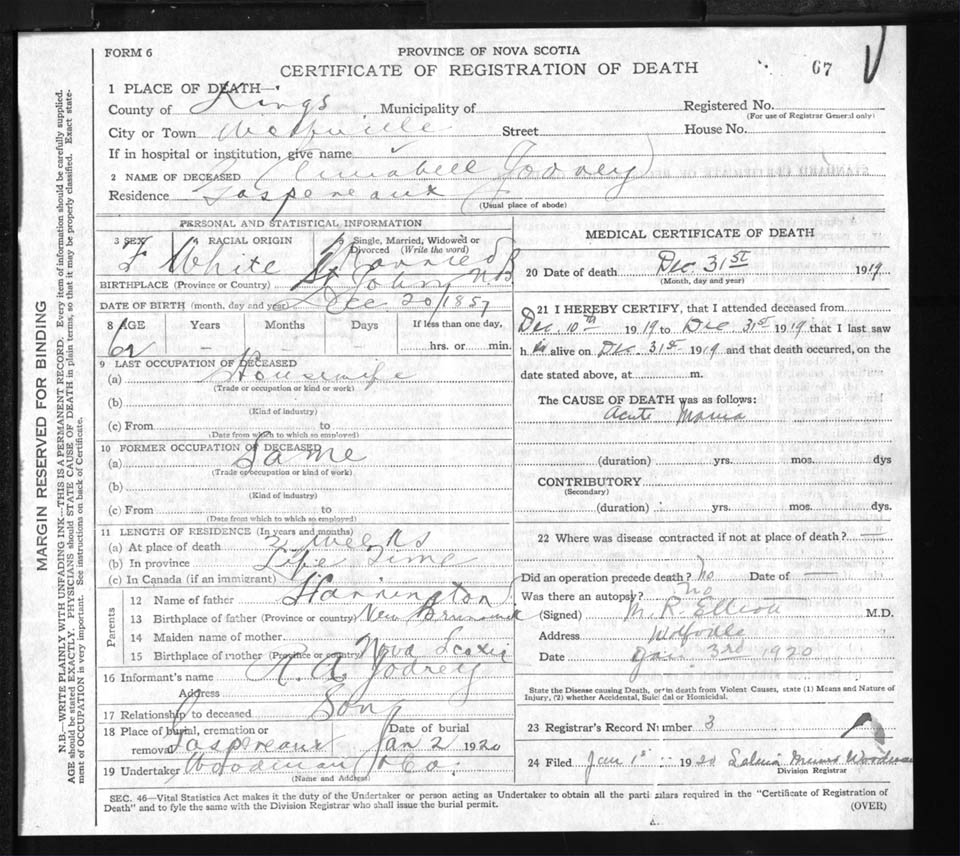 FORM 6
PROVINCE OF NOVA SCOTIA
CERTIFICATE OF REGISTRATION OF DEATH
67
1 PLACE OF DEATH—
County of Kings Municipality of Registered No.
(For use of Registrar General only)
City or Town Wolfville Street House No.
If in hospital or institution, give name
2 NAME OF DECEASED Annabell Jodrey
Residence Gaspereaux
(Usual place of abode)
PERSONAL AND STATISTICAL INFORMATION
3 SEX 4 RACIAL ORIGIN 5 Single, Married, Widowed or Divorced (Write the word)
F White Married
BIRTHPLACE (Province or Country) St Johns NB
DATE OF BIRTH (month, day and year) Dec 20/1857
8 AGE Years Months Days If less than one day,
62 — — — hrs. or min.
9 LAST OCCUPATION OF DECEASED
(a) Housewife
(Trade or occupation or kind or work)
(b)
(Kind of industry)
(c) From to
(Date from which to which so employed)
10 FORMER OCCUPATION OF DECEASED
(a) Same
(Trade or occupation or kind of work)
(b)
(Kind of industry)
(c) From to
(Date from which to which so employed)
11 LENGTH OF RESIDENCE (In years and months)
(a) At place of death 2 weeks
(b) In province Life Time
(c) In Canada (if an immigrant)
Parents
12 Name of father Harrington
13 Birthplace of father (Province or country) New Brunswick
14 Maiden name of mother
15 Birthplace of mother (Province or country) Nova Scotia
16 Informant's name R. A. Jodrey
Address
17 Relationship to deceased Son
18 Place of burial, cremation or removal Gaspereaux Date of burial Jan 2 1920
19 Undertaker Woodman & Co.
(Name and Address)
MEDICAL CERTIFICATE OF DEATH
20 Date of death Dec. 31st 1919
(Month, day and year)
21 I HEREBY CERTIFY, that I attended deceased from
Dec. 10th 1919 to Dec 31st 1919 that I last saw
h alive on Dec. 31st 1919 and that death occurred, on the
date stated above, at m.
The CAUSE OF DEATH was as follows:
Acute Mania
(duration) yrs. mos. dys
CONTRIBUTORY
(Secondary)
(duration) yrs. mos. dys.
22 Where was disease contracted if not at place of death? —
Did an operation precede death? No Date of —
Was there an autopsy? No
(Signed) M. R. Elliott M.D.
Address Wolfville
Date Jan. 3rd 1920
State the Disease causing Death, or in death from Violent Causes, state (1) Means and Nature of Injury, (2) whether Accidental, Suicidal or Homicidal.
23 Registrar's Record Number 3
24 Filed Jan 1st 1920
Division Registrar
SEC. 46—Vital Statistics Act makes it the duty of the Undertaker or person acting as Undertaker to obtain all the particulars required in the "Certificate of Registration of
Death" and to fyle the same with the Division Registrar who shall issue the burial permit.
(OVER)
MARGIN RESERVED FOR BINDING
N.B.—WRITE PLAINLY WITH UNFADING INK—THIS IS A PERMANENT RECORD. Every item of information should be carefully supplied.
AGE should be stated EXACTLY. PHYSICIANS should STATE CAUSE OF DEATH in plain terms, so that it may be properly classified. Exact statement of OCCUPATION is very important. See instructions on back of Certificate.